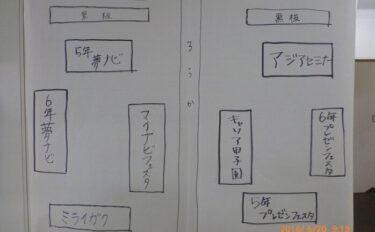 黒板
5年
夢ナビ
6年夢ナビ
マイナビフェスタ
ミライガク
ろうか
黒板
アジアセミナー
キャリア甲子園
6年プレゼンフェスタ
5年
プレゼンフェスタ